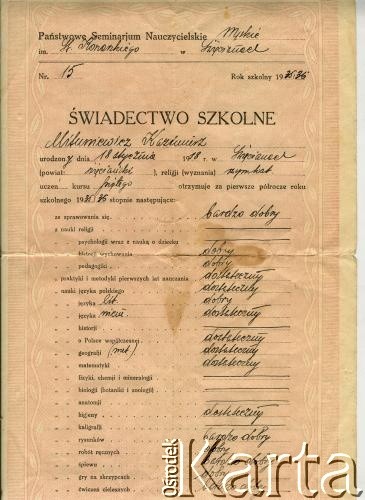 Państwowe Seminarjum Nauczycielskie Męskie
im. w Święcianach
Nr. 15 Rok szkolny 1935/36
ŚWIADECTWO SZKOLNE
Kazimierz
urodzony dnia 18 stycznia 1918 r. w Święcianach
(powiat: święciański), religji (wyznania) rzym.kat.
uczeń kursu piątego otrzymuje za pierwsze półrocze roku
szkolnego 1935/36 stopnie następujące:
ze sprawowania się. bardzo dobry
z nauki religji
„ psychologji wraz z nauką o dziecku
„ historji wychowania dobry
„ pedagogiki dobry
„ praktyki i metodyki pierwszych lat nauczania dostateczny
„ nauki języka polskiego dostateczny
„ „ języka lit. dobry
„ „ języka niem. dostateczny
„ „ historji
„ „ o Polsce współczesnej dostateczny
„ „ geografji dostateczny
„ „ matematyki dostateczny
„ „ fizyki, chemji i mineralogji
„ „ biologji (botaniki i zoologji)
„ „ anatomji
„ „ higjeny dostateczny
„ „ kaligrafji
„ „ rysunków bardzo dobry
„ „ robót ręcznych dobry
„ „ śpiewu dobry
„ „ gry na skrzypcach
„ „ ćwiczeń cielesnych
Ośrodek Karta